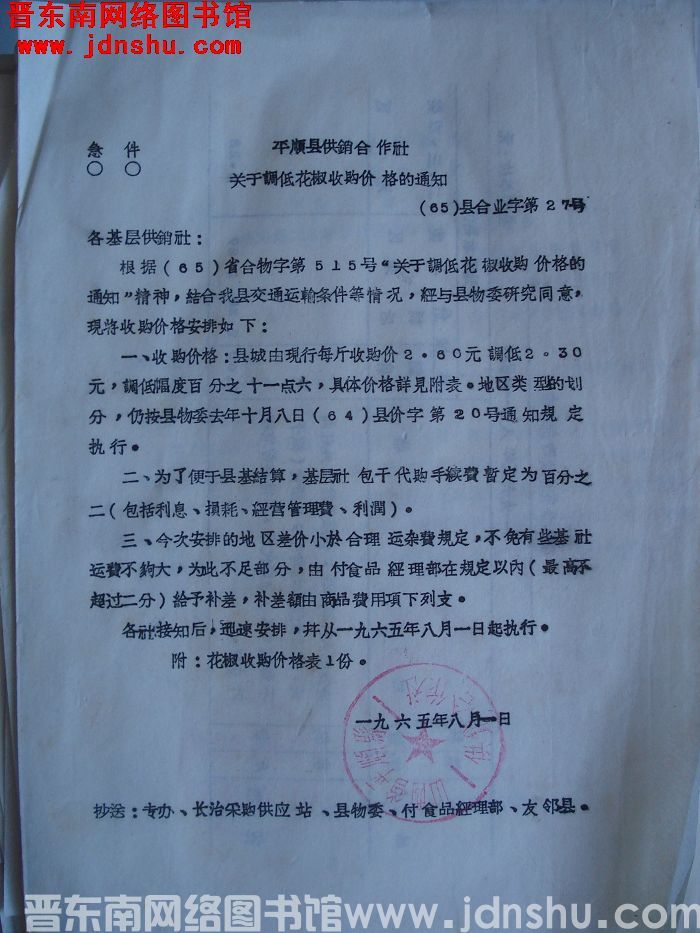 晋东南网络图书馆
www.jdnshu.com
急件
○○
平顺县供銷合作社
关于調低花椒收购价格的通知
(65)县合业字第27号
各基层供銷社：
根据(65)省合物字第515号“关于調低花椒收购价格的
通知”精神，結合我县交通运輸条件等情况，經与县物委研究同意，
现将收购价格安排如下：
一、收购价格：县城由现行每斤收购价2.60元調低2.30
元，調低幅度百分之十一点六，具体价格詳見附表。地区类型的划
分，仍按县物委去年十月八日(64)县价字第20号通知規定
执行。
二、为了便于县基結算，基层社包干代购手續費暫定为百分之
二(包括利息、損耗、經营管理費、利潤)。
三、今次安排的地区差价小於合理运杂費規定，不免有些基社
运費不夠大，为此不足部分，由付食品經理部在規定以內(最高不
超过二分)給予补差，补差額由商品費用項下列支。
各社接知后，迅速安排，并从一九六五年八月一日起执行。
附：花椒收购价格表1份。
一九六五年八月一日
抄送：专办、长治采购供应站、县物委、付食品經理部、友邻县。
晋东南网络图书馆www.jdnshu.com